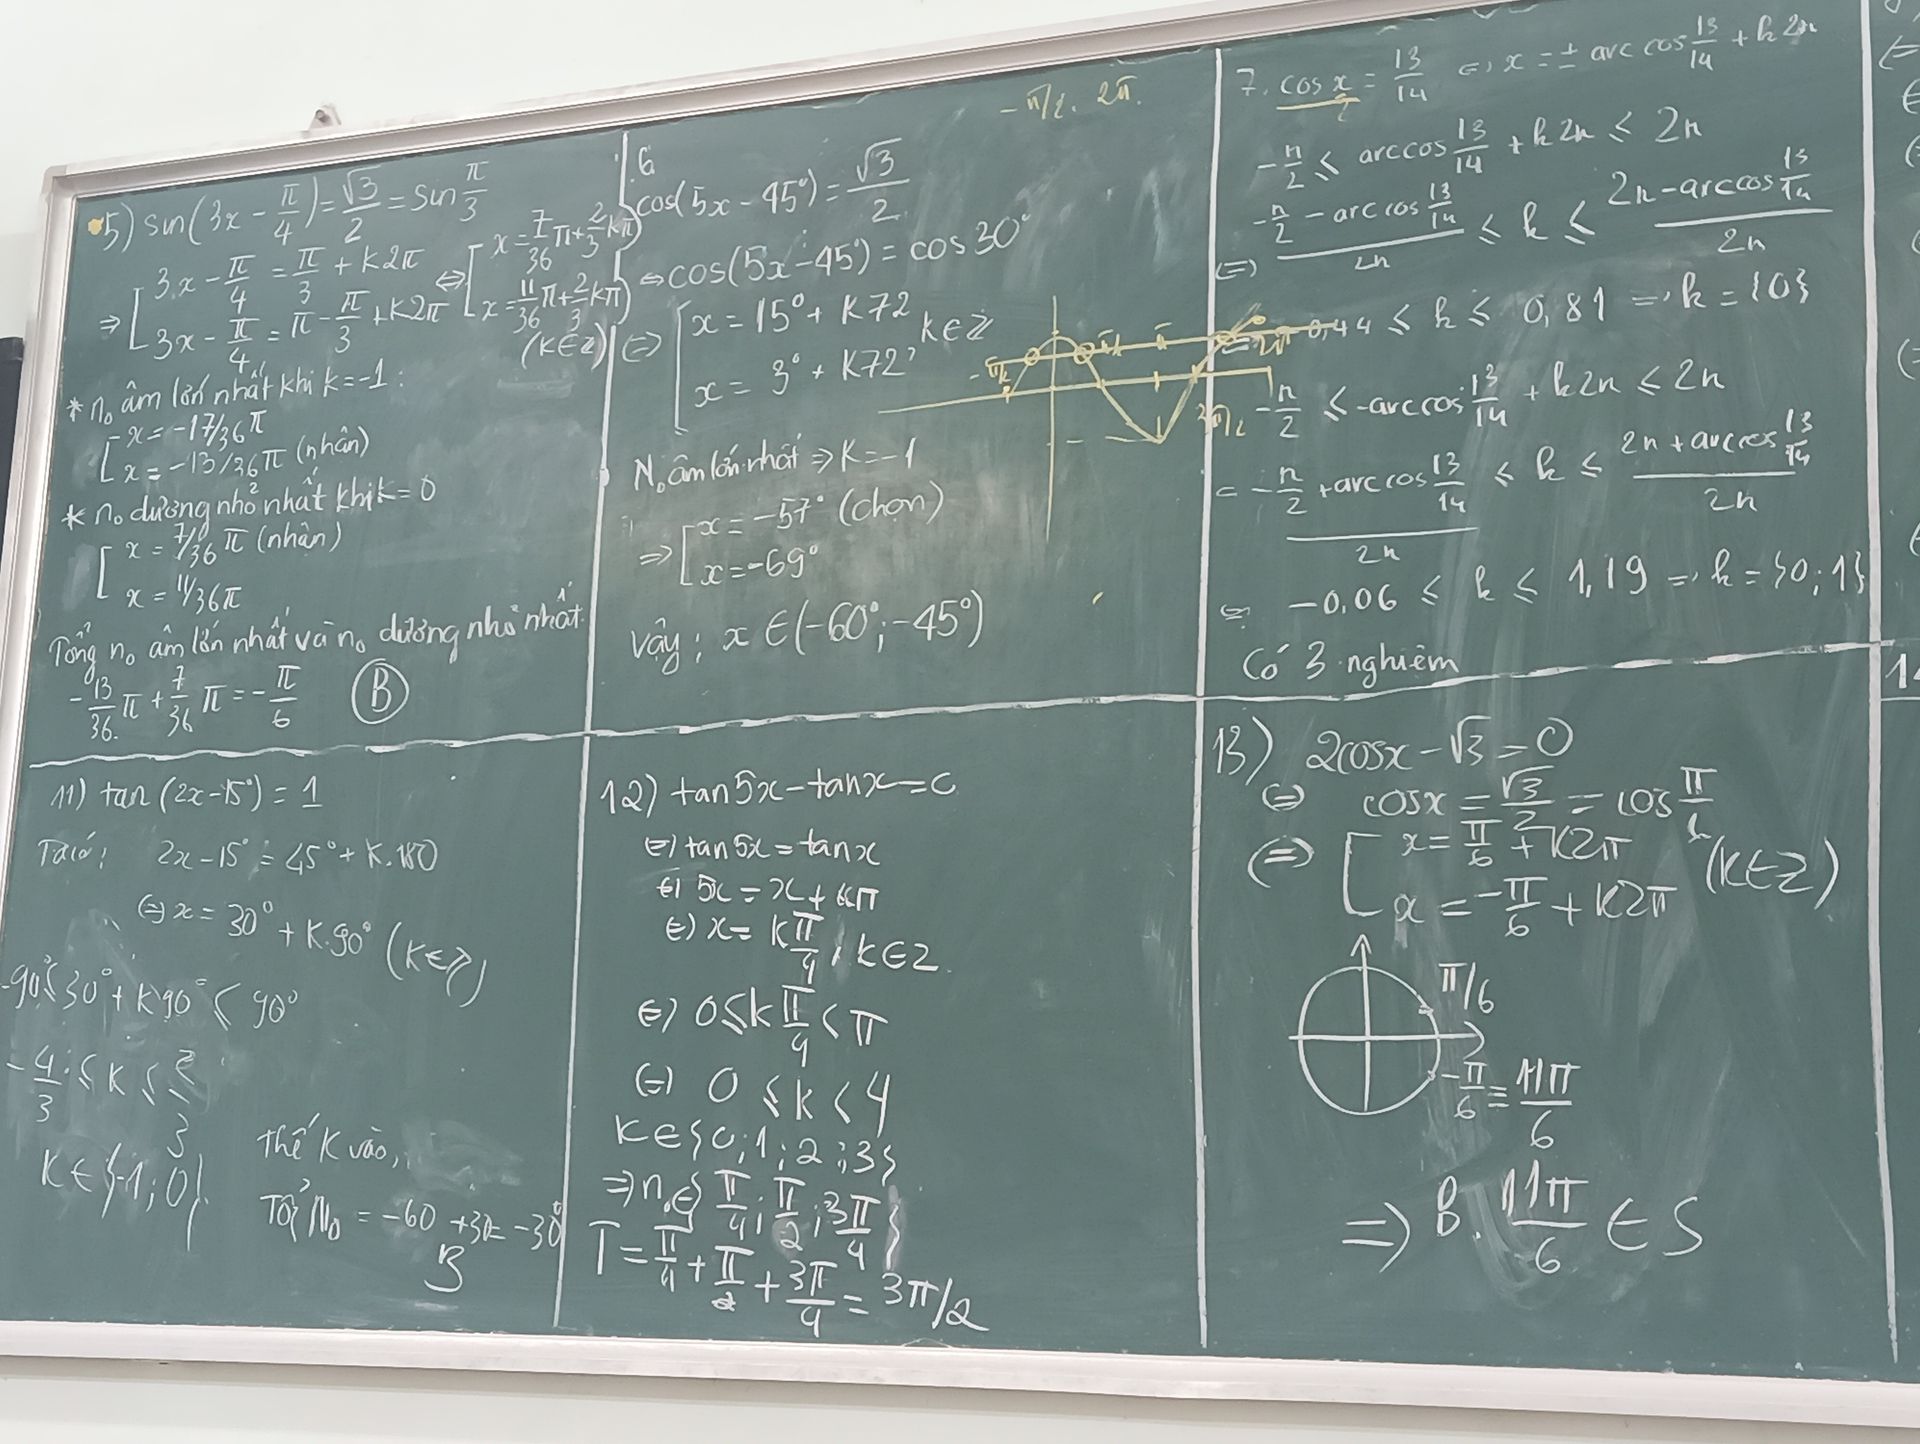 5) sin(3x - π/4) = √3/2 = sin π/3
⇒ [ 3x - π/4 = π/3 + k2π ⇔ [ x = 7/36 π + 2/3 kπ
3x - π/4 = π - π/3 + k2π x = 11/36 π + 2/3 kπ
(k∈Z)
* n₀ âm lớn nhất khi k = -1:
[ x = -17/36 π
x = -13/36 π (nhân)
* n₀ dương nhỏ nhất khi k = 0
[ x = 7/36 π (nhân)
x = 11/36 π
Tổng n₀ âm lớn nhất và n₀ dương nhỏ nhất
-13/36 π + 7/36 π = -π/6 (B)
6
cos(5x - 45°) = √3/2
⇔ cos(5x - 45°) = cos 30°
⇔ [ x = 15° + k72 k∈Z
x = 3° + k72°
N₀ âm lớn nhất ⇒ k = -1
⇒ [ x = -57° (chọn)
x = -69°
Vậy: x ∈ (-60°; -45°)
-π/2. 2π.
-π/2
π/2
π
2π
3π/2
7. cos x = 13/14 ⇔ x = ± arc cos 13/14 + k2π
-π/2 ≤ arccos 13/14 + k2π ≤ 2π
⇔ (-π/2 - arc cos 13/14)/2π ≤ k ≤ (2π - arccos 13/14)/2π
= -0,44 ≤ k ≤ 0,81 ⇒ k = {0}
-π/2 ≤ -arccos 13/14 + k2π ≤ 2π
= (-π/2 + arc cos 13/14)/2π ≤ k ≤ (2π + arccos 13/14)/2π
⇔ -0,06 ≤ k ≤ 1,19 ⇒ k = {0; 1}
Có 3 nghiệm
11) tan (2x - 15°) = 1
Ta có: 2x - 15° = 45° + k.180
⇔ x = 30° + k.90° (k∈Z)
-90° ≤ 30° + k90° ≤ 90°
-4/3 ≤ k ≤ 2/3
k ∈ {-1; 0}
Thế k vào,
N₀ = -60 + 30 = -30°
B
12) tan5x - tanx = 0
⇔ tan 5x = tan x
⇔ 5x = x + kπ
⇔ x = k π/4, k∈Z
⇔ 0 ≤ k π/4 < π
⇔ 0 ≤ k < 4
k ∈ {0; 1; 2; 3}
⇒ n₀ ∈ { π/4; π/2; 3π/4 }
T = π/4 + π/2 + 3π/4 = 3π/2
13) 2cosx - √3 = 0
⇔ cosx = √3/2 = cos π/6
⇔ [ x = π/6 + k2π (k∈Z)
x = -π/6 + k2π
π/6
-π/6 ≡ 11π/6
⇒ B. 11π/6 ∈ S